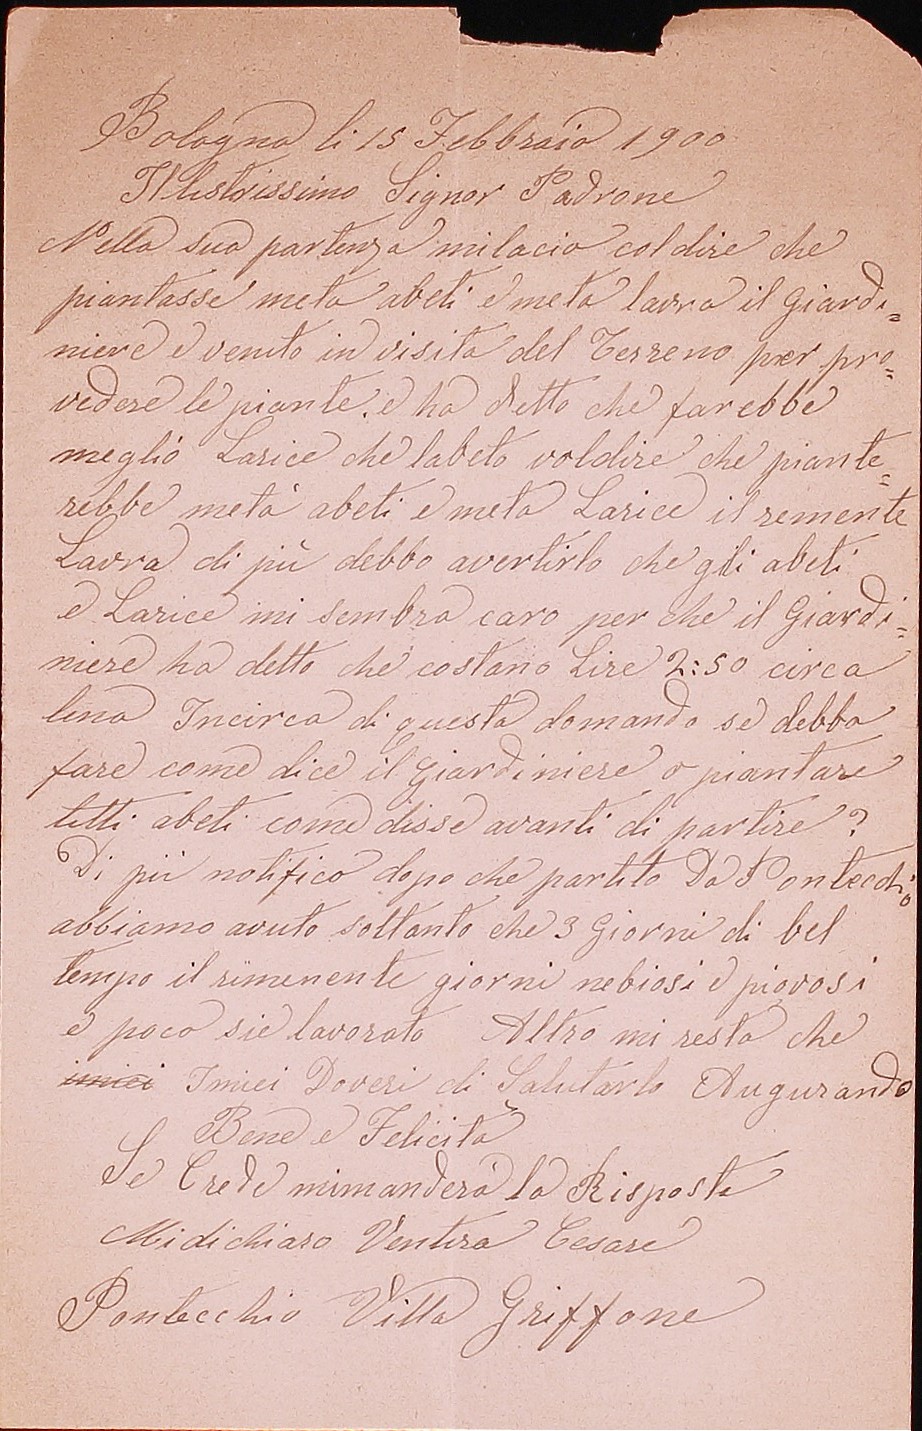 Bologna li 15 Febbraio 1900
Illustrissimo Signor Padrone
Nella sua partenza milacio col dire che
piantasse meta abeti e meta lavra il Giardi=
niere e venuto in visita del Terreno per pro=
vedere le piante. e ha detto che farebbe
meglio Larice che labeto voldire che piante=
rebbe metà abeti e meta Larice il remente
Lavra di più debbo avertirlo che gli abeti
e Larice mi sembra caro per che il Giardi=
niere ha detto che costano Lire 2:50 circa
luna Incirca di questa domando se debbo
fare come dice il Giardiniere o piantare
tutti abeti come disse avanti di partire?
Di più notifico dopo che partito Da Pontecchio
abbiamo avuto soltanto che 3 Giorni di bel
tempo il rimenente giorni nebiosi e piovosi
e poco sie lavorato Altro mi resta che
imiei Imiei Doveri di Salutarlo Augurando
Bene e Felicità
Se Crede mimanderà la Risposta
Midichiaro Ventura Cesare
Pontecchio Villa Griffone